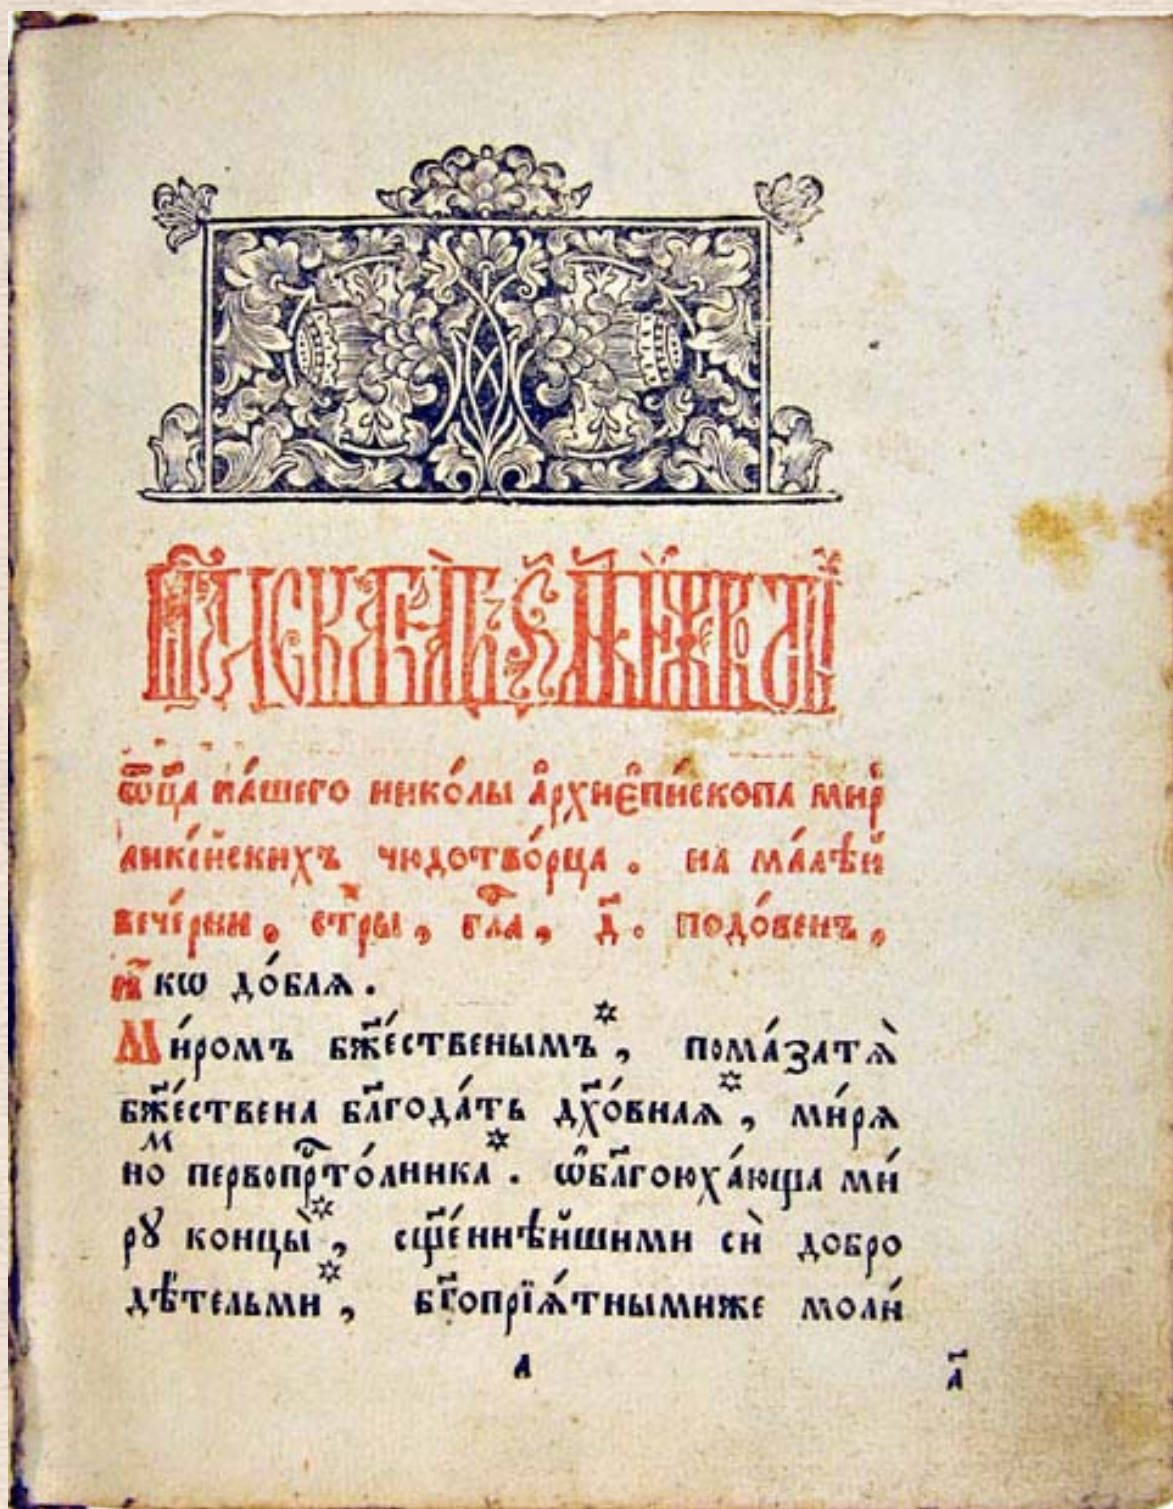 ѿц҃а на́шего нико́лы а҆рхиѐпи́скопа мирꙿ
ликі́йскихъ чюдотво́рца . на ма́лѣй
вече́рни , ст҃ры , гл҃а , д҃ . подо́бенъ ,
ꙗ҆́кѡ до́блѧ .
Ми́ромъ бж҃е́ственымъ * , пома́затѧ̀
бж҃е́ствена бл҃года́ть дх҃о́внаѧ * , ми́рѧ
ноⷨ первопрⷭ҇то́лника * . ѡ҆бл҃гоюха́юща ми́
рꙋ концы̀ * , сщ҃е́ннѣйшими сѝ добро
дѣ́тельми * , бг҃опрїѧ́тнымиже моли́
а
а҃